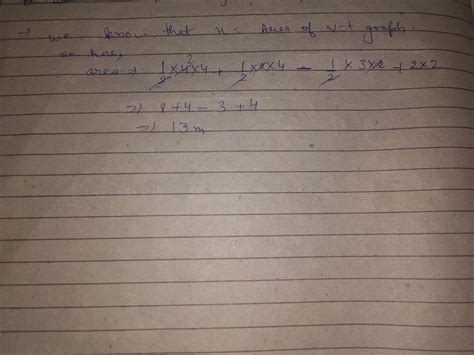 → we know that x = Area of v-t graph.
so here,
area → 1/2 × 4 2 × 4 + 1/2 × 2 × 4 - 1/2 × 3 × 2 + 2 × 2
⇒ 8 + 4 - 3 + 4
⇒ 13m